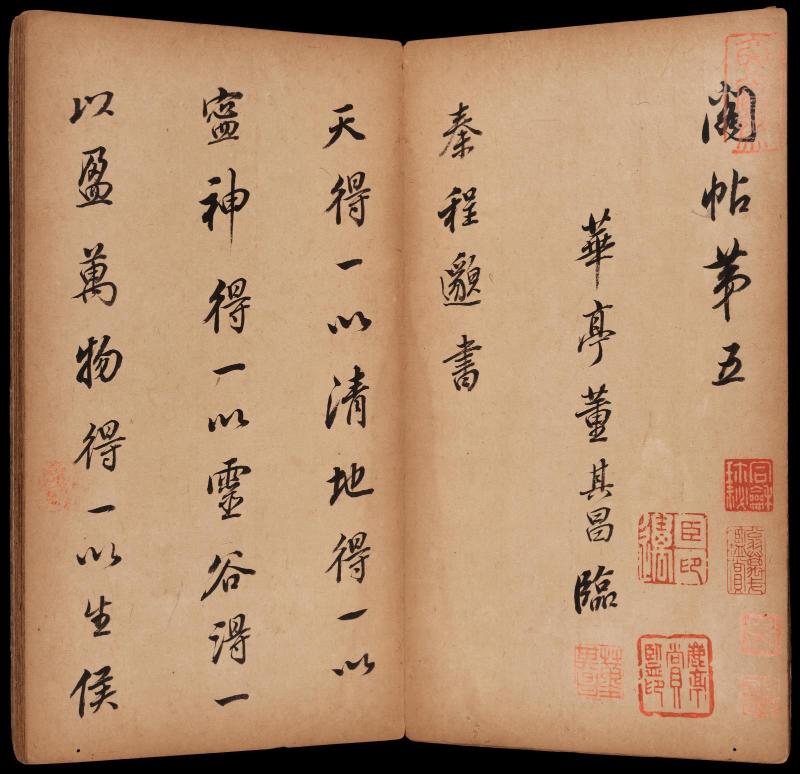 閣帖第五
華亭董其昌臨
秦程邈書
天得一以清地得一以
寍神得一以靈谷得一
以盈萬物得一以生侯
臣印
麐亭賞鑒印